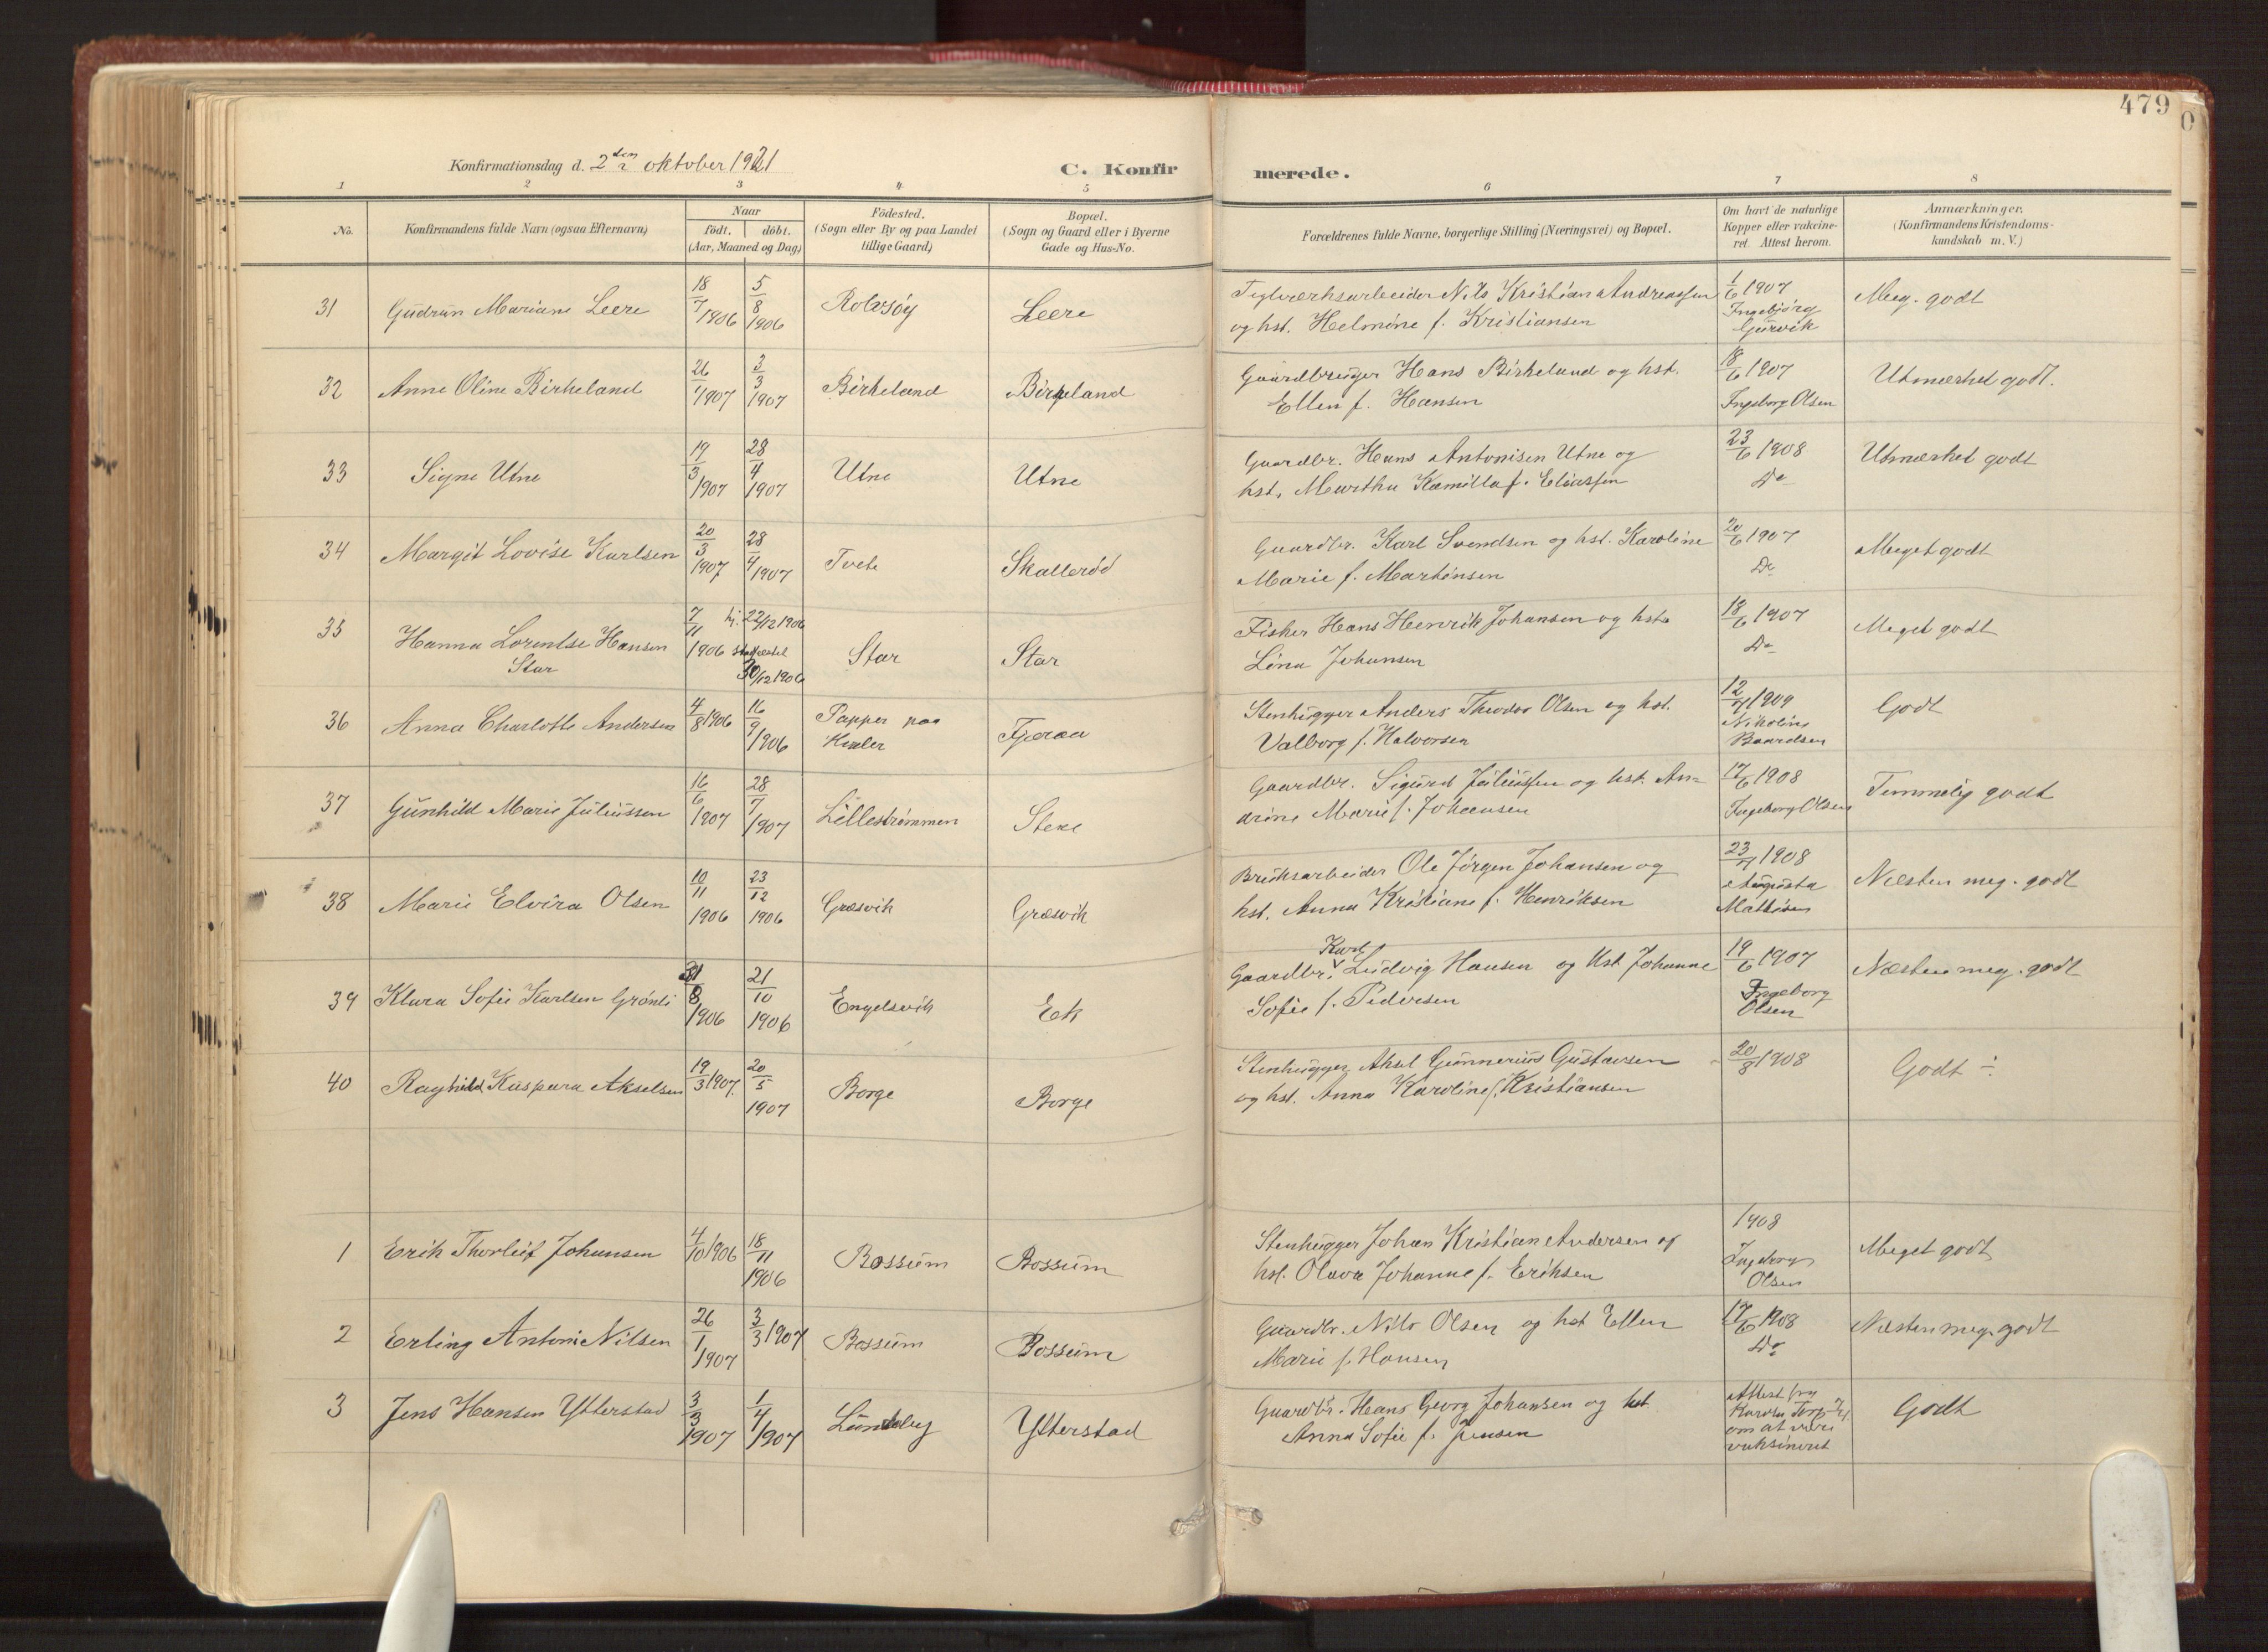 479
Konfirmationsdag d. 2den oktober 1921
C. Konfirmerede.
1 2 3 4 5 6 7 8
No.
Konfirmandens fulde Navn (ogsaa Efternavn)
Naar
födt. döbt.
(Aar, Maaned og Dag)
Födested.
(Sogn eller By og paa Landet
tillige Gaard)
Bopæl.
(Sogn og Gaard eller i Byerne
Gade og Hus-No.
Forældrenes fulde Navne, borgerlige Stilling (Næringsvei) og Bopæl.
Om havt de naturlige
Kopper eller vakcine-
ret. Attest herom.
Anmærkninger.
(Konfirmandens Kristendoms-
kundskab m. V.)
31 Gudrun Mariane Leere 18/7 1906 5/8 1906 Rolvsøy Leere
Teglverksarbeider Nils Kristian Andreassen
og hst. Helmine f. Kristiansen
1/6 1907
Ingebjørg
Gurvik
Meg. godt
32 Anne Oline Birkeland 26/1 1907 3/3 1907 Birkeland Birkeland
Gaardbruger Hans Birkeland og hst.
Ellen f. Hansen
18/6 1907
Ingeborg Olsen
Utmerket godt.
33 Signe Utne 19/3 1907 28/4 1907 Utne Utne
Gaardbr. Hans Antonisen Utne og
hst. Martha Kamilla f. Eliassen
23/6 1908
Do
Utmerket godt
34 Margit Lovise Karlsen 20/3 1907 28/4 1907 Tvete Skallerød
Gaardbr. Karl Svendsen og hst. Karoline
Marie f. Martinsen
20/6 1907
Do
Meget godt
35 Hanna Lorentse Hansen
Star
7/11 1906 hj. 22/12 1906
stadfestet
30/12 1906
Star Star
Fisker Hans Henrik Johansen og hst.
Lina Johansen
18/6 1907
Do
Meget godt
36 Anna Charlotte Andersen 4/8 1906 16/9 1906 Papper paa
Hvaler
Fjæraa
Stenhugger Anders Theodor Olsen og hst.
Valborg f. Halvorsen
12/7 1909
Nikoline
Baardsen
Godt
37 Gunhild Marie Juliussen 16/6 1907 28/7 1907 Lillestrømmen Stene
Gaardbr. Sigurd Juliussen og hst. An-
drine Marie f. Johansen
17/6 1908
Ingeborg Olsen
Temmelig godt
38 Marie Elvira Olsen 10/11 1906 23/12 1906 Græsvik Græsvik
Bruksarbeider Ole Jørgen Johansen og
hst. Anna Kristiane f. Henriksen
23/7 1908
Augusta
Mathisen
Næsten meg. godt
39 Klara Sofie Karlsen Grønli 31/8 1906 21/10 1906 Engelsvik Ek
Gaardbr. Karl Ludvig Hansen og hst Johanne
Sofie f. Pedersen
19/6 1907
Ingeborg
Olsen
Næsten meg. godt
40 Raghild Kaspara Akselsen 19/3 1907. 20/5 1907 Borge Borge
Stenhugger Aksel Gunnerius Gustavsen
og hst. Anna Karoline f. Kristiansen
20/8 1908
Godt ÷
1 Erik Thorleif Johansen 4/10 1906 18/11 1906 Bossum Bossum
Stenhugger Johan Kristian Andersen og
hst. Olava Johanne f. Eriksen
1908
Ingeborg
Olsen
Meget godt
2 Erling Antoni Nilsen 26/1 1907 3/3 1907 Bossum Bossum
Gaardbr. Nils Olsen og hst Ellen
Marie f. Hansen
17/6 1908
Do
Næsten meg. godt
3 Jens Hansen Ytterstad 3/3 1907 1/4 1907 Lundeby Ytterstad
Gaardbr. Hans Georg Johansen og hst
Anna Sofie f. Jensen
Attest fra
om at være
vaksineret
Godt